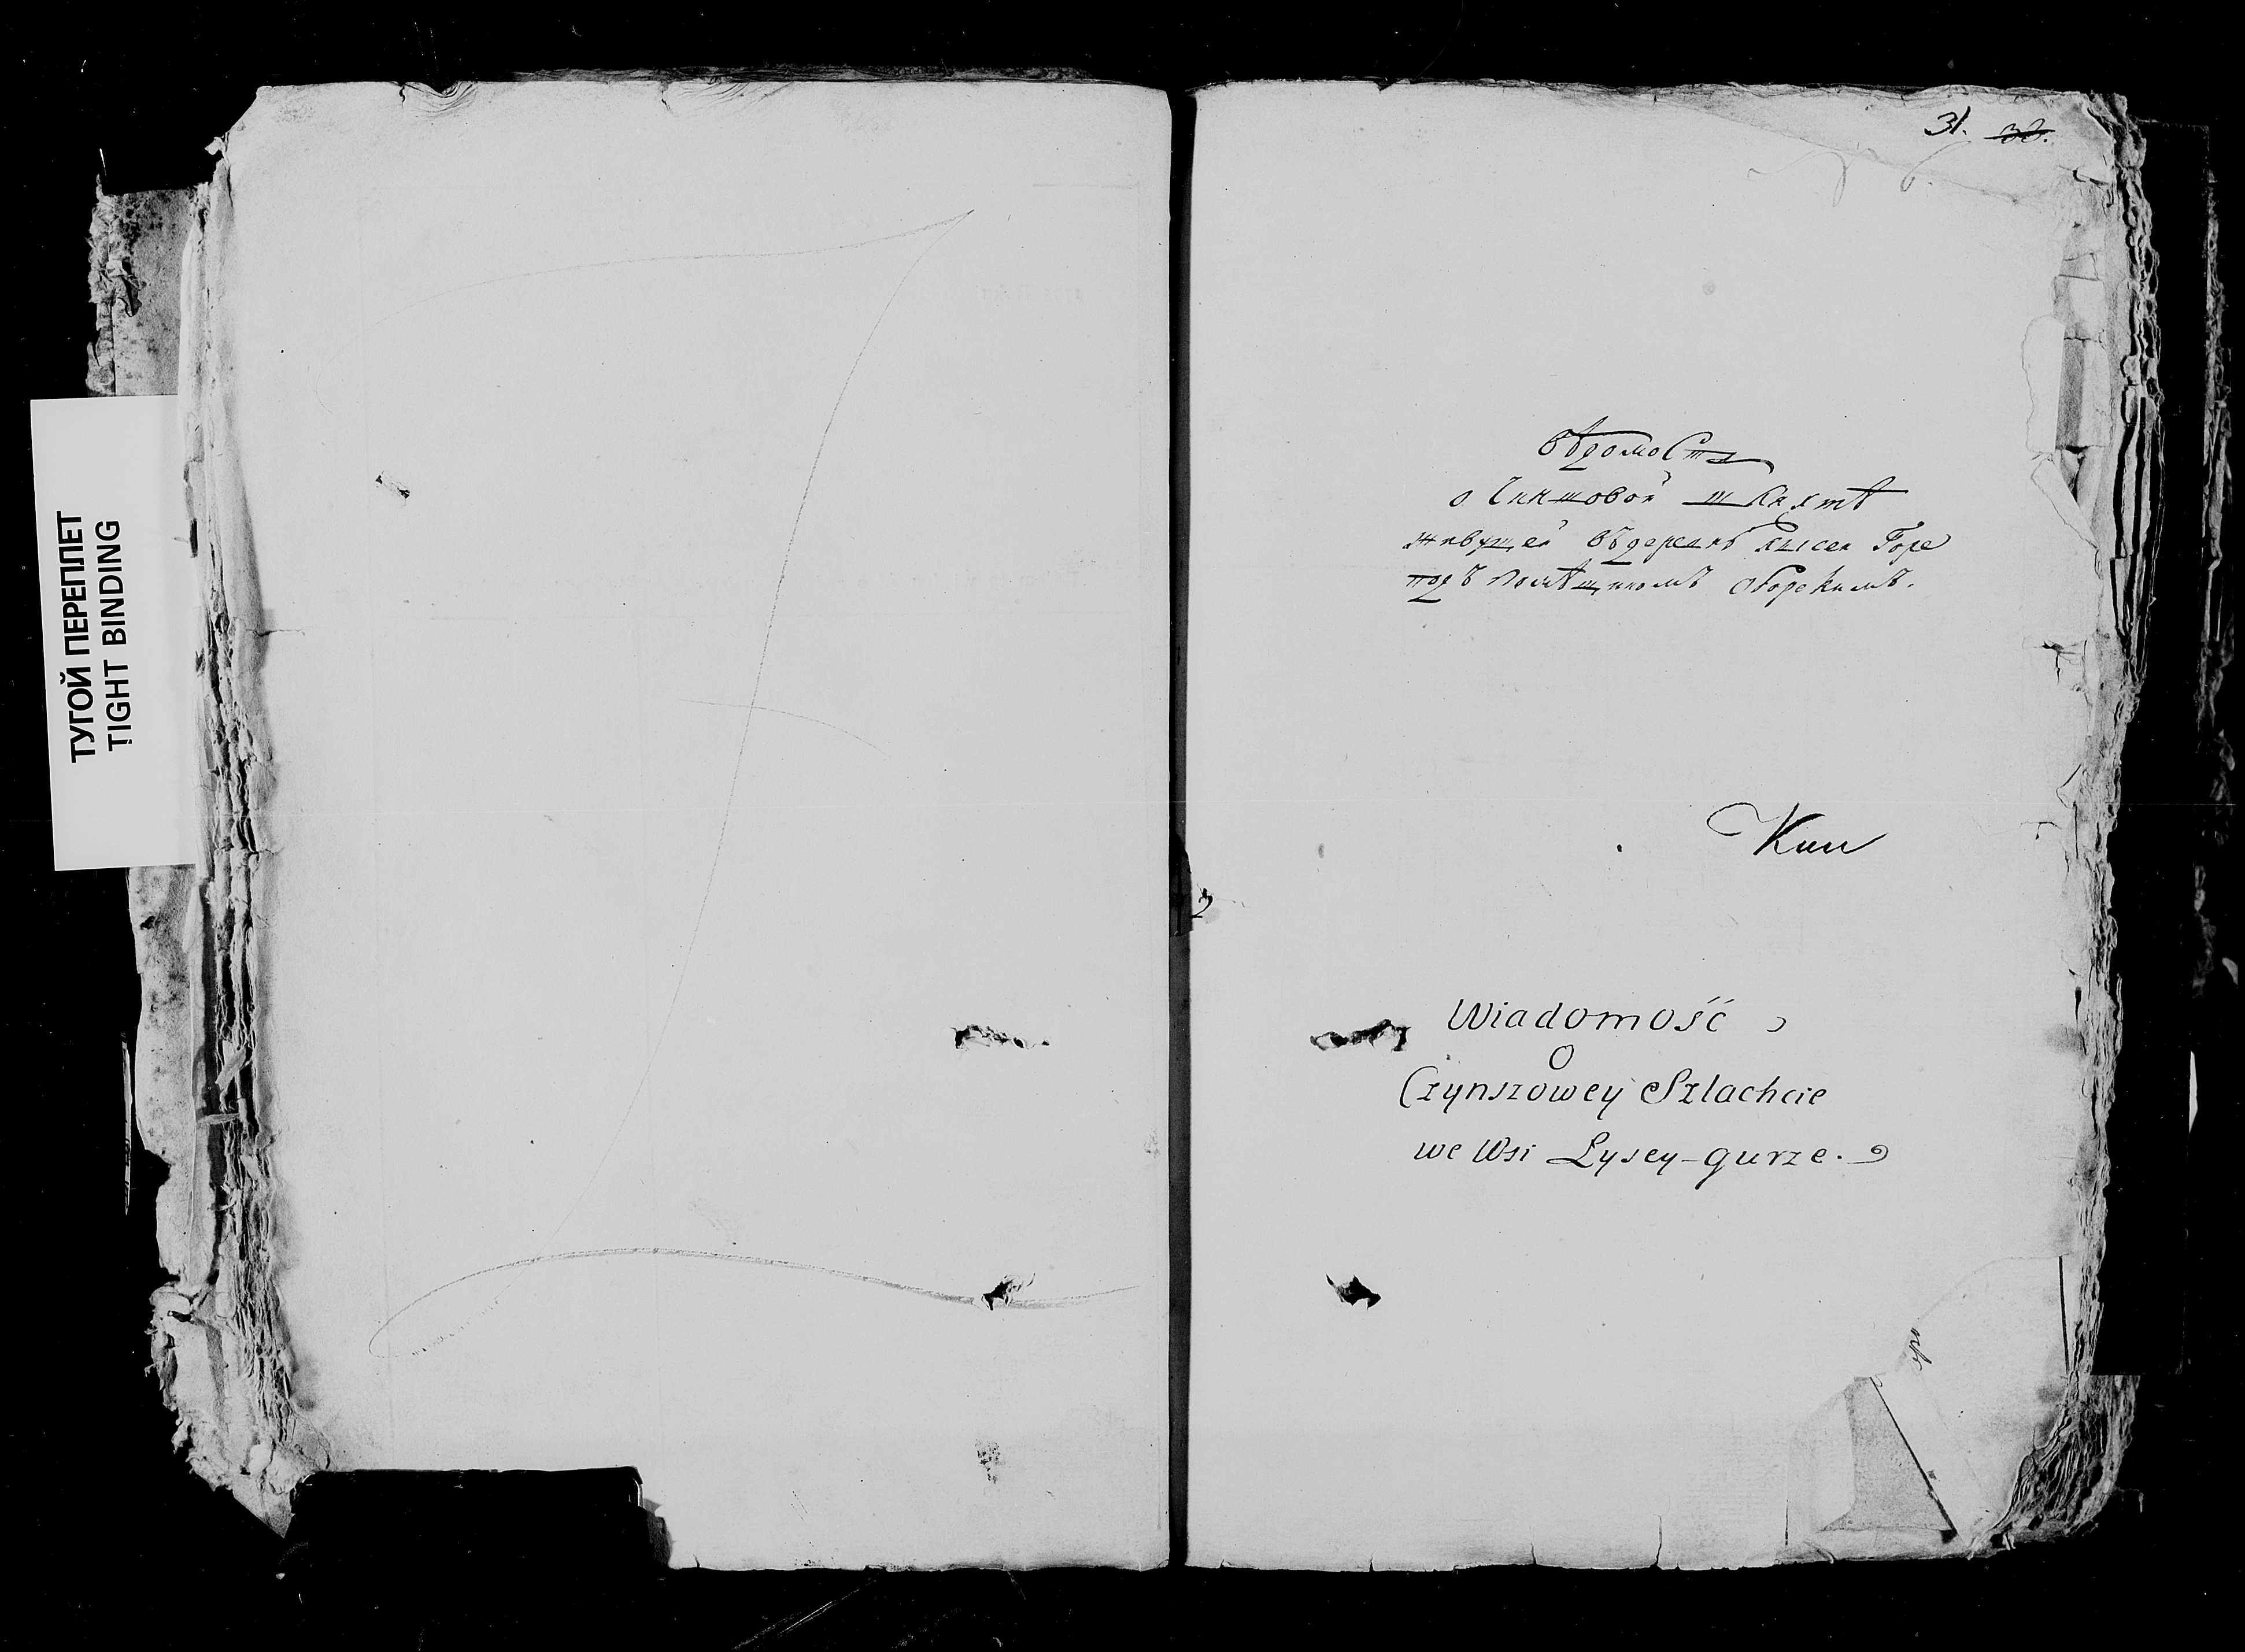 ТУГОЙ ПЕРЕПЛЕТ
TIGHT BINDING
31. 32.
Вѣдомость
о Чиншовой шляхтѣ
живущей въ деревнѣ Лысей Горе
подъ помѣщикомъ
2
Wiadomość
O
Czynszowey Szlachcie
we Wsi Lysey-gurze.